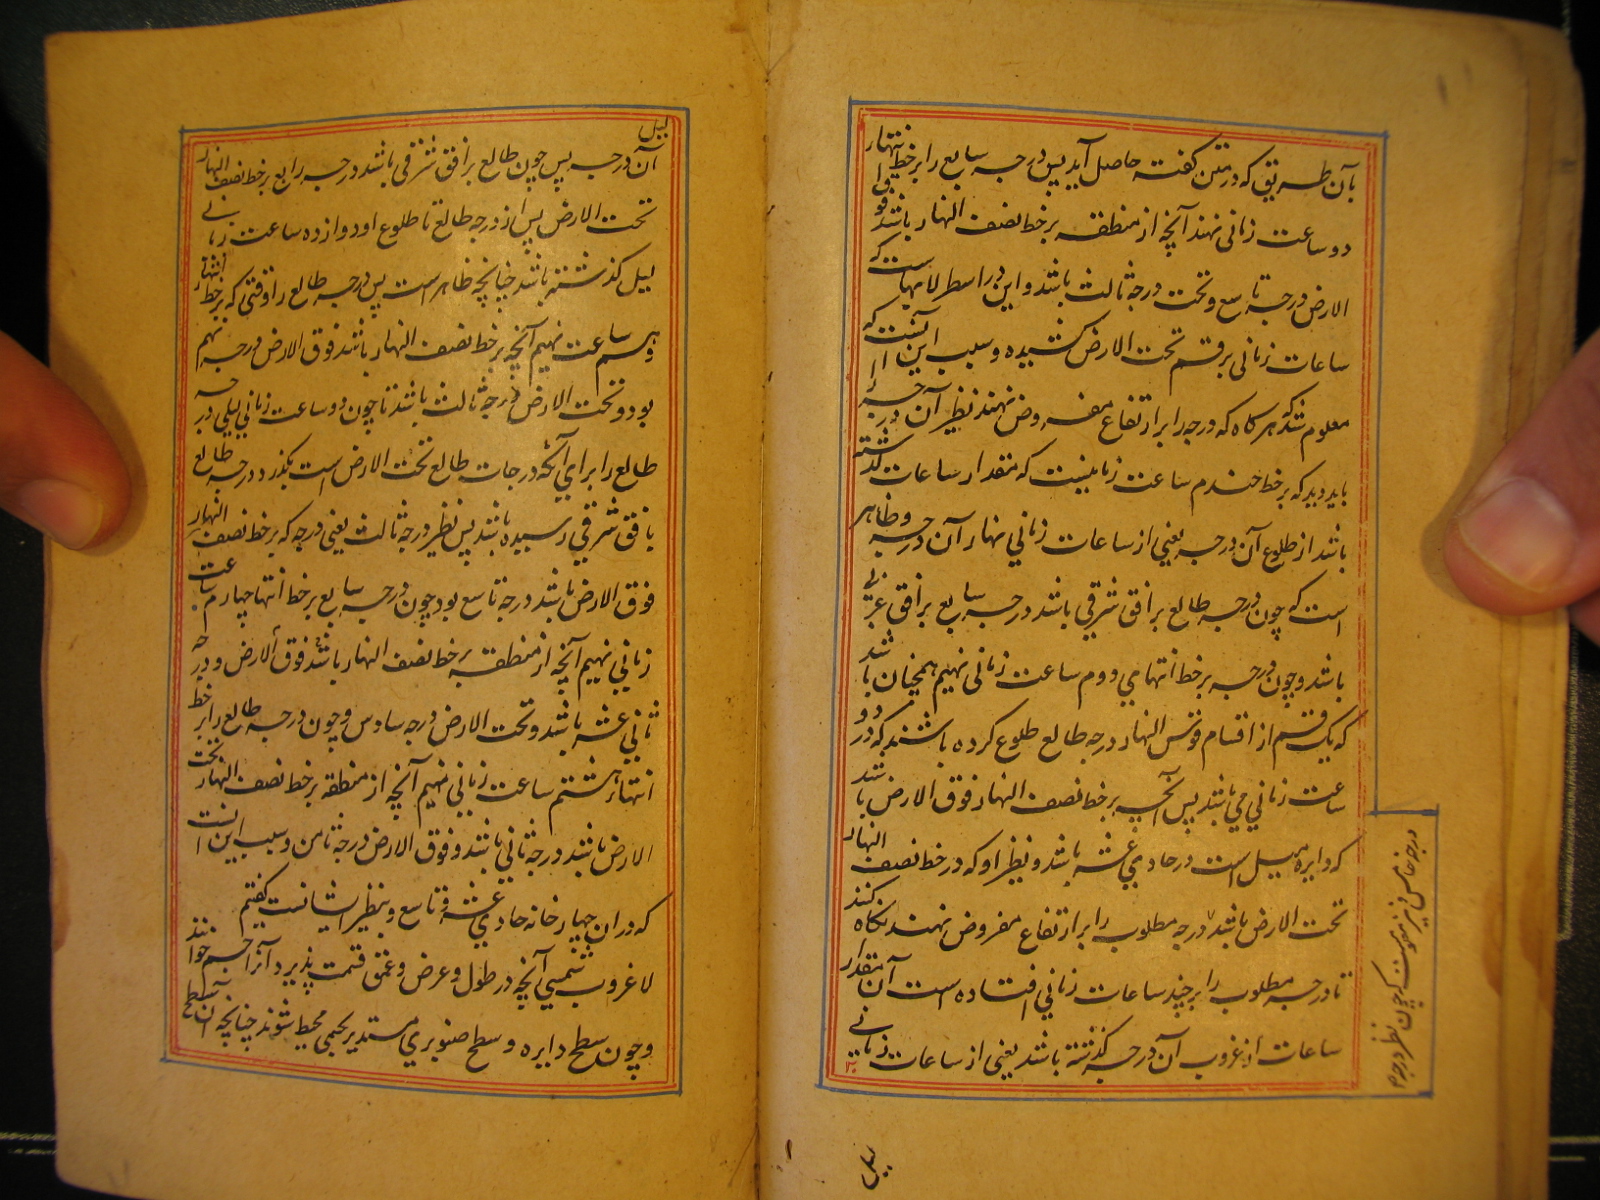 بآن طریق که در متن گفته حاصل آید پس درجه سابع را بر خط انتهار
دو ساعت زمانی نهند آنچه از منطقه بر خط نصف النهار باشد فوق
الارض درجه تاسع و تحت درجه ثالث باشد و این در اسطرلابهاست که
ساعات زمانی بر قسم تحت الارض کشیده و سبب این آنست که
معلوم شد که هر گاه که درجه را بر ارتفاع مفروض نهند نظیر آن درجه را
باید دید که بر خط چندم ساعت زمانیست که مقدار ساعات گذشته
باشد از طلوع آن درجه یعنی از ساعات زمانی نهار آن درجه و ظاهر
است که چون درجه طالع بر افق شرقی باشد درجه سابع بر افق غربی
باشد و چون درجه بر خط انتهامی دوم ساعت زمانی نهیم همچنان باشد
که یک قسم از اقسام قوس النهار درجه طالع طلوع کرده باشند که دو
ساعت زمانی می باشد پس آنچه بر خط نصف النهار فوق الارض باشد
که دایره میل است درجه حادی عشر باشد و نظیر او که در خط نصف النهار
تحت الارض باشد درجه مطلوب را بر ارتفاع مفروض نهند نگاه کنند
تا درجه مطلوب را بر چند ساعات زمانی افتاده است آن مقدار
ساعات از غروب آن درجه گذشته باشد یعنی از ساعات زمانی
درجه خامس و نیز
که چون نظیر درجه
لیل
لیل
آن درجه پس چون طالع بر افق شرقی باشد درجه رابع بر خط نصف النهار
تحت الارض پس از درجه طالع تا طلوع او دوازده ساعت زمانی
لیل گذشته باشد چنانچه ظاهر است پس درجه طالع را وقتی که بر خط انتهار
دهم ساعت نهیم آنچه بر خط نصف النهار باشد فوق الارض درجه نهم
بود و تحت الارض درجه ثالث باشد تا چون دو ساعت زمانی لیلی درجه
طالع را برای آنکه درجات طالع تحت الارض است بگذرد درجه طالع
بافق شرقی رسیده باشد پس نظیر درجه ثالث یعنی درجه که بر خط نصف النهار
فوق الارض باشد درجه تاسع بود چون درجه سابع بر خط انتها چهارم ساعت
زمانی نهیم آنچه از منطقه بر خط نصف النهار باشد فوق الارض درجه
ثانی عشر باشد و تحت الارض درجه سادس و چون درجه طالع را بر خط
انتهاء هشتم ساعت زمانی نهیم آنچه از منطقه بر خط نصف النهار تحت
الارض باشد درجه ثانی باشد و فوق الارض درجه ثامن و سبب این آنست
که در ان چهار خانه حادی عشر و تاسع و نظیر ایشانست گفتیم
لا غروب شمسی آنچه در طول و عرض و عمق قسمت پذیرد آنرا جسم خوانند
و چون سطح دایره و سطح صنوبری مستدیر بجسمی محیط شوند چنانچه آن سطح